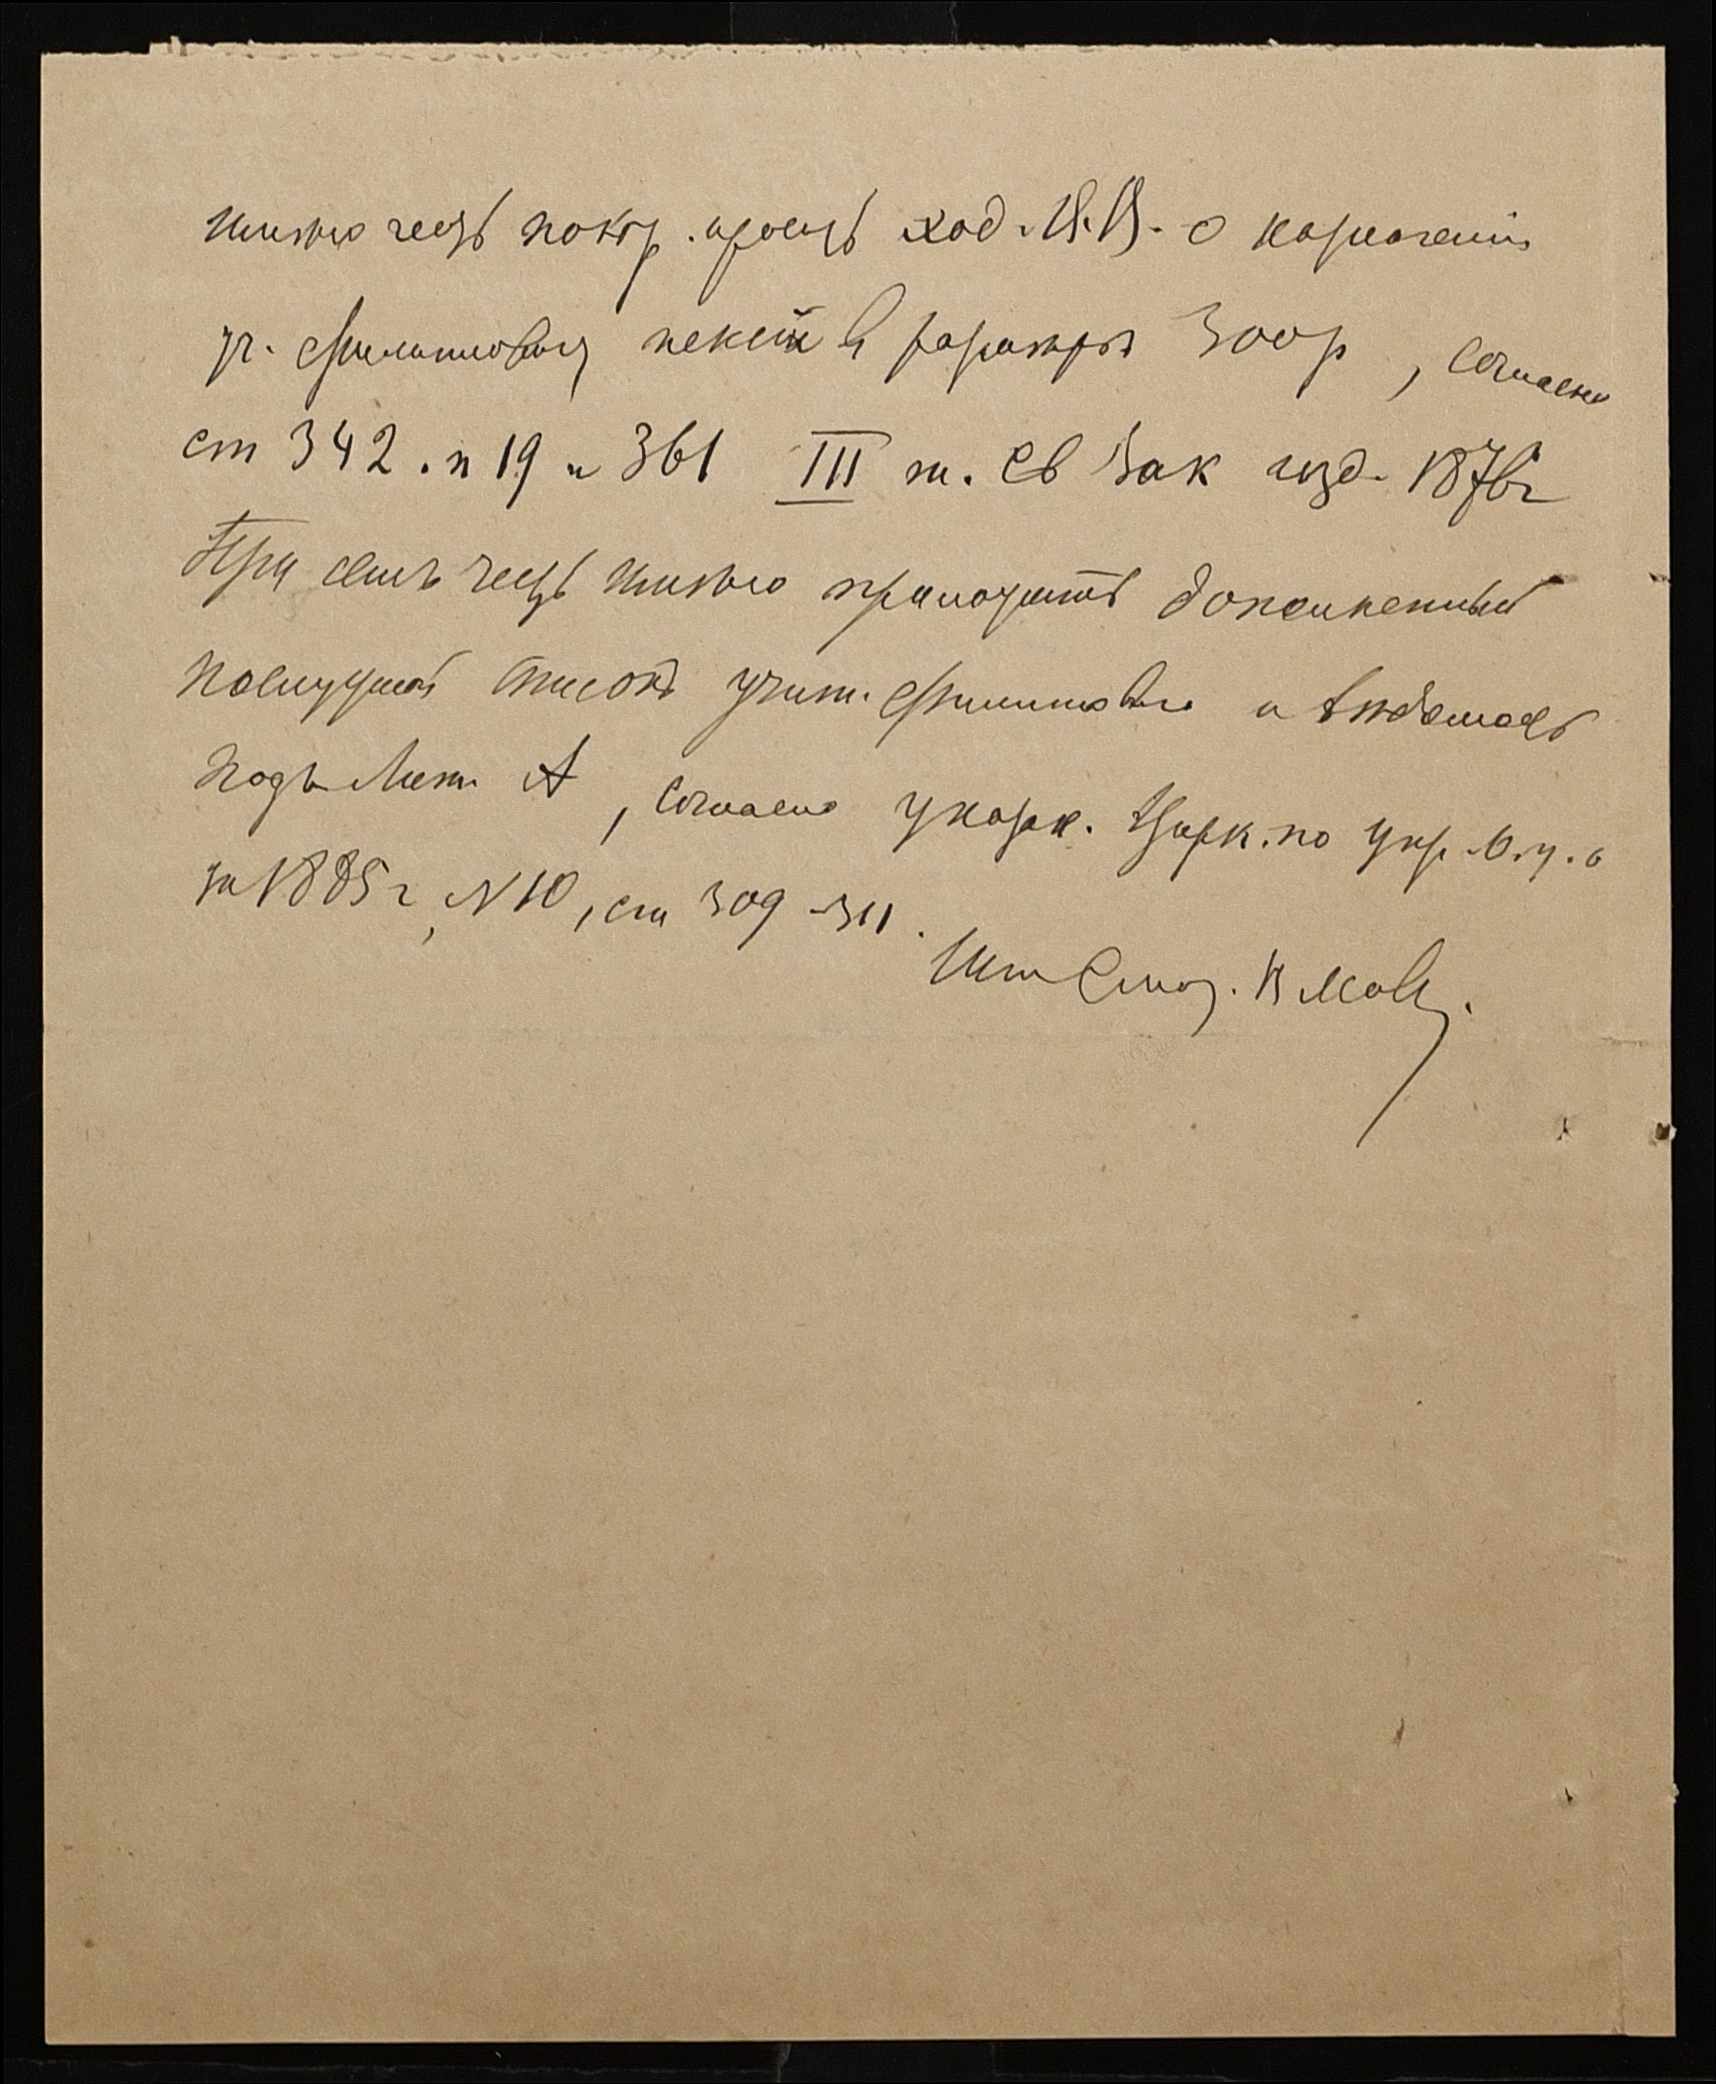 имѣю честь покор. просить ход. В. В. о назначеніи
уч. Филипповичу пенсіи въ размѣрѣ 300 р, согласно
ст 342. п 19 и 361 III т. Св Зак изд. 1876 г
При семъ честь имѣю приложить дополненный
послужной списокъ учит. Филипповича и вѣдомость
подъ Лит. А, согласно указан. Цирк. по Упр. В. у. о
за 1885 г, N 10, ст 309-311.
Шт Смот.